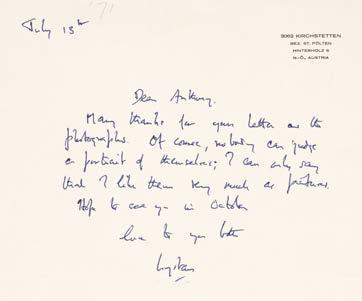 July 13th '71
3062 KIRCHSTETTEN
BEZ. ST. PÖLTEN
HINTERHOLZ 6
N.-Ö., AUSTRIA
Dear Anthony.
Many thanks for your letter and the
photographs. Of course, nobody can judge
a portrait of themselves; I can only say
that I like them very much as pictures.
Hope to see you in October
love to you both
Wystan